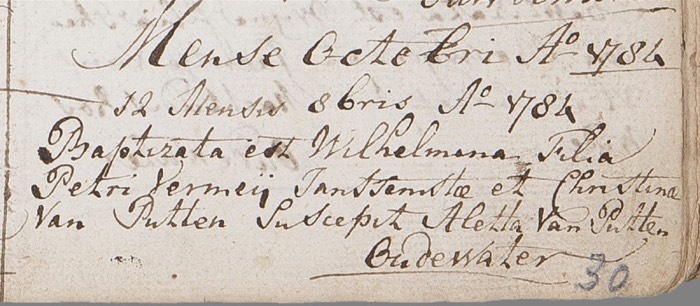 Mense Octobri Aº 1784
12 Mensis 8bris Aº 1784
Baptizata est Wilhelmina Filia
Petri Vermeij Janssenistæ et Christinæ
Van Putten Suscepit Aletta Van Putten
Oudewater
30